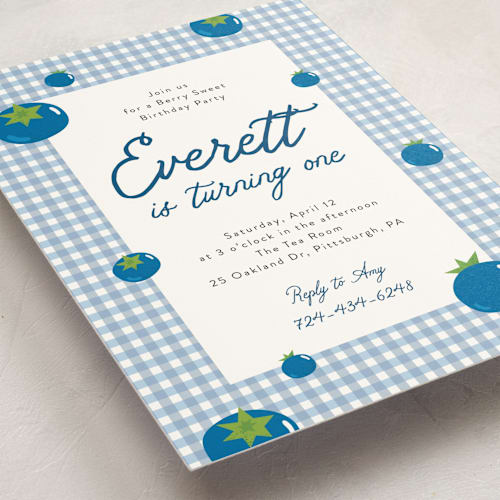 Join us
for a Berry Sweet
Birthday Party
Everett
is turning one
Saturday, April 12
at 3 o'clock in the afternoon
The Tea Room
25 Oakland Dr, Pittsburgh, PA
Reply to Amy
724-434-6248